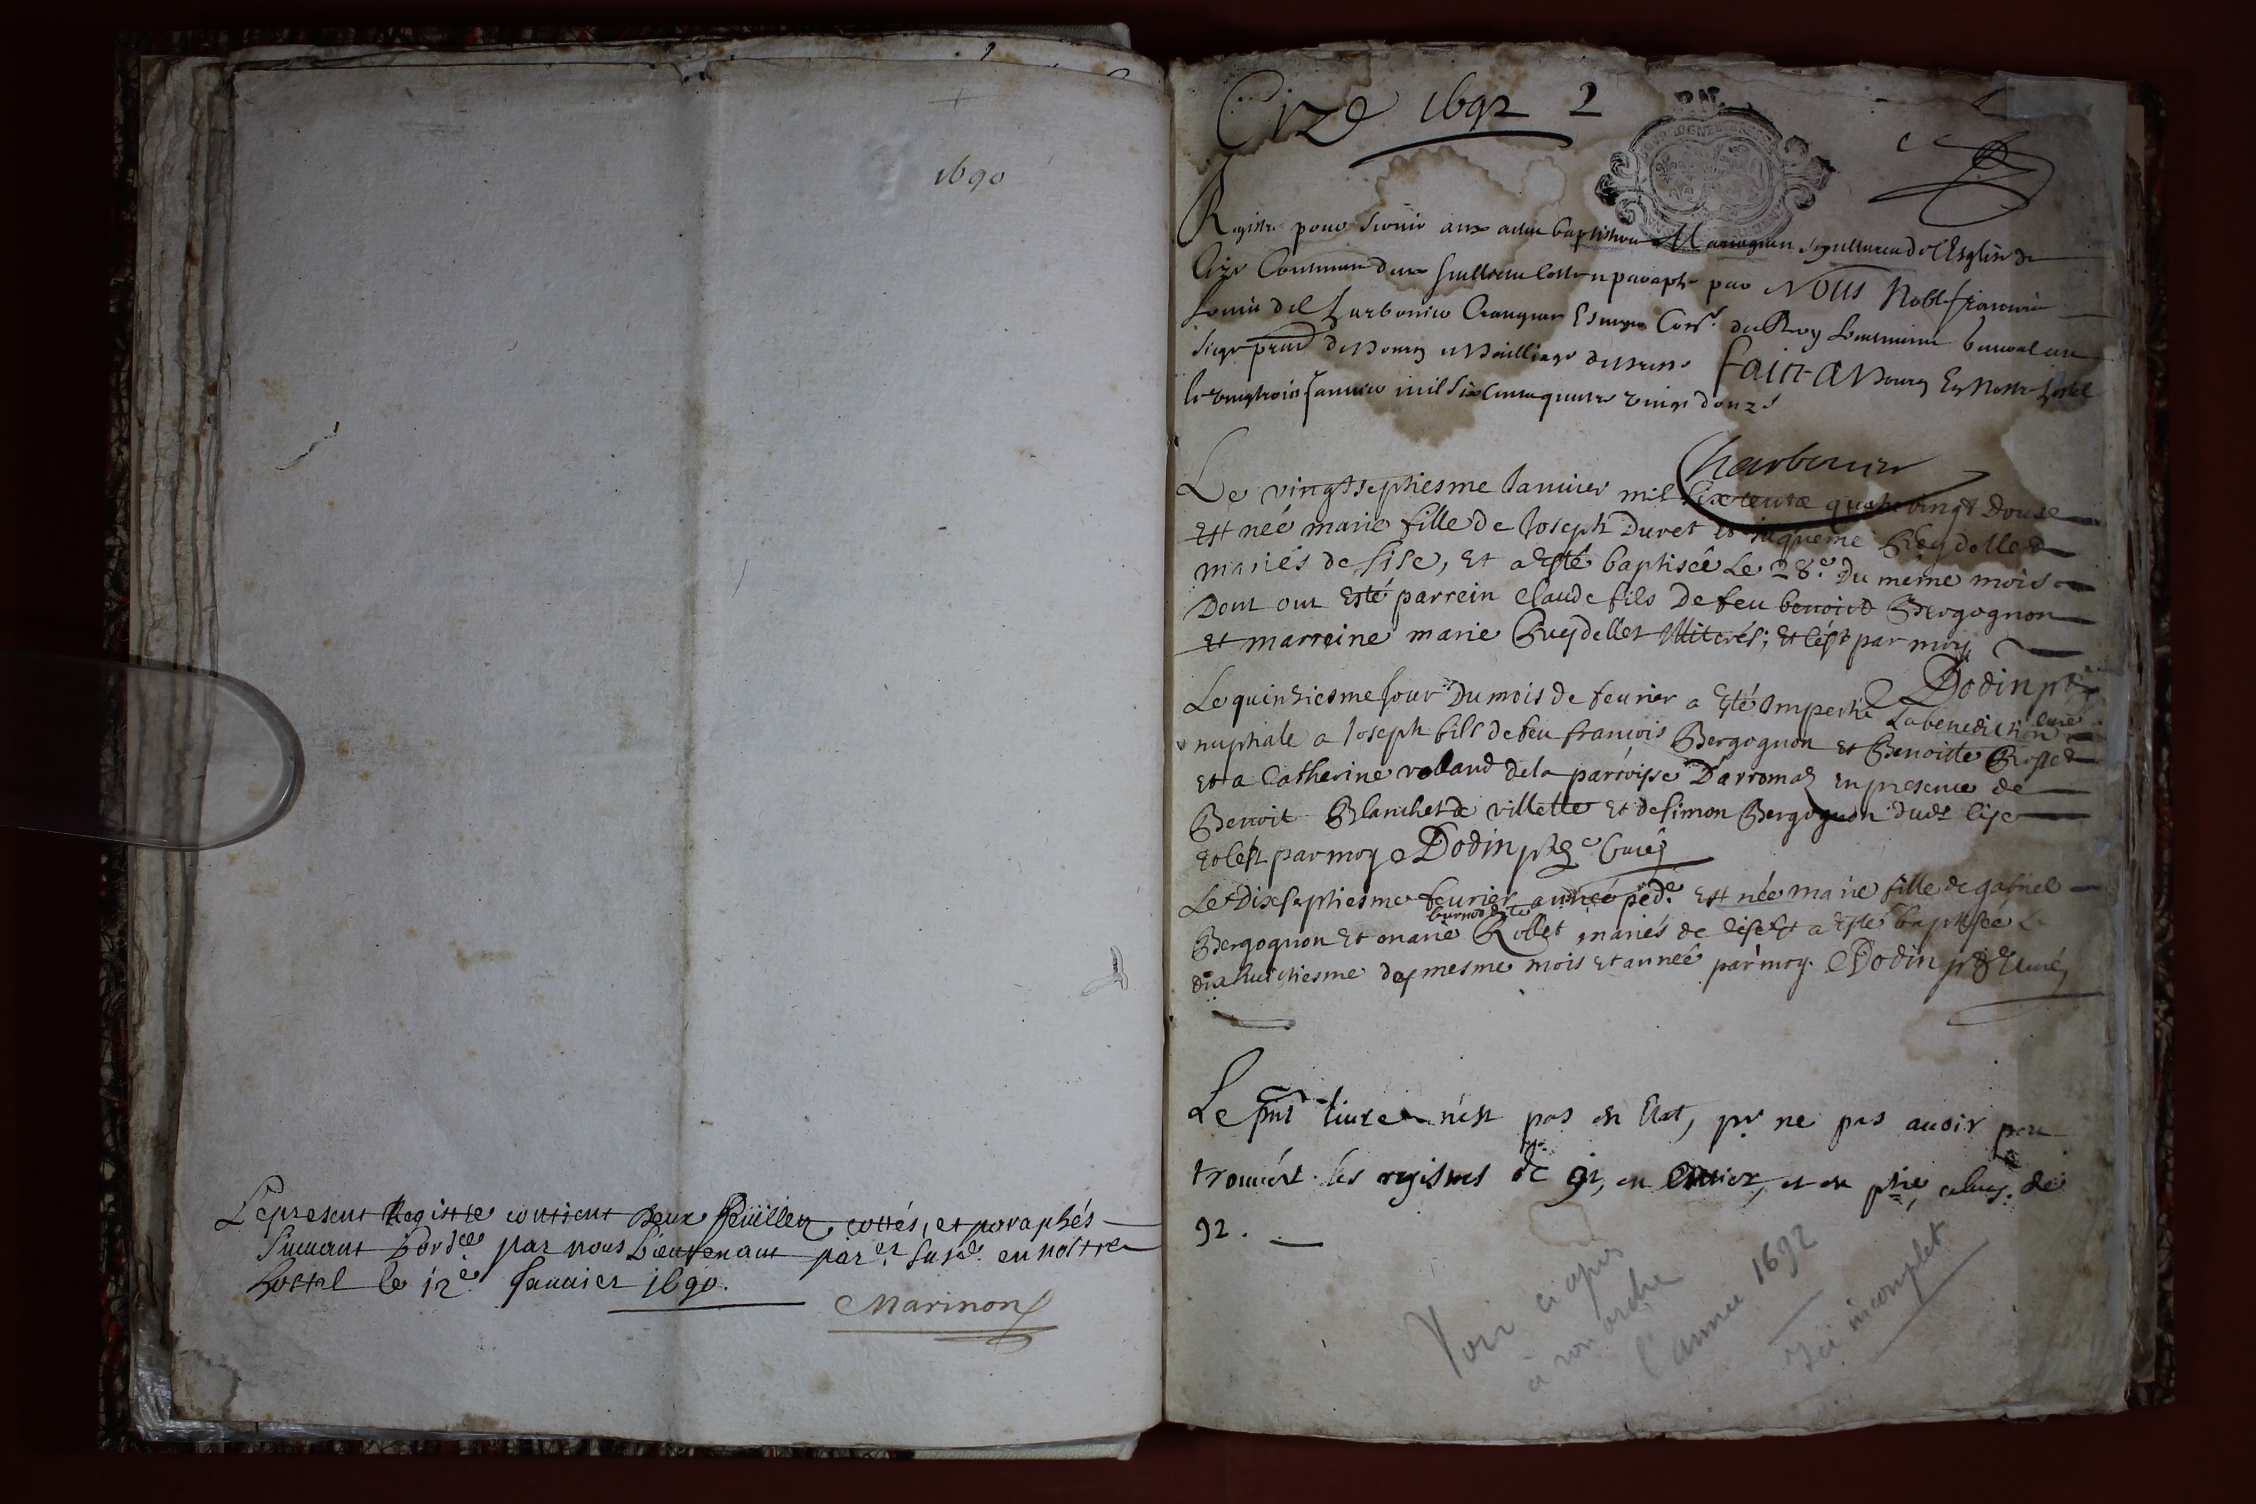 1690
Le present Registre contient deux feüillets, cottés, et paraphés
Suivant L'ordce par nous Lieutenant par.er susd. en nostre
hostel le 12e Januier 1690.
Marinon
Cize 1692 2
Registre pour seruir aux actes baptistaires Mariages sepultures de l'Esglise de
Cize Contenant deux feuillets Cottes et paraphé par Nous Noble francois
Louis de Charbonier Crangeac Escuyer Cons.r du Roy Lieutenant general au
siege pnal de Bourg et Bailliage de Bresse Fait A Bourg En Nostre hostel
le vingt trois Januier mil six cents quatre vingt douze
Charbonier
Le vingt septiesme Januier mil six cents quatre vingt Douze
Est née marie fille de Joseph Duret et Jaqueme Reydellet
mariés de sise, Et a esté baptisée Le 28e Du meme mois
Dont ont Esté parrein claude fils De feu benoist Bergognon
Et marreine marie Reydellet illiterés; et c'est par moy
Dodin ptre
curé
Le quinziesme Jour Du mois de feurier a esté Impertie La benediction
nuptiale a Joseph fils de feu francois Bergognon et Benoitte
Et a Catherine rolland de la parroisse D'arromas en presence de
Benoit Blanchet de villette Et de simon Bergognon dudt cise
Et c'est par moy Dodin ptre Curé
Le Dix septiesme feurier année péde Est née marie fille de gabriel
Bergognon Et marie Rollet mariés de cise Et a esté baptisée Le
dix huictiesme du mesme mois et année par moy. Dodin ptre Curé
Le pnt liure n'est pas en Etat, pr ne pas auoir peu
trouvér les registres de 91, en Entier, et en ptie, celuy de
92.
Voir ci après
à son ordre
l'année 1692
ici incomplet